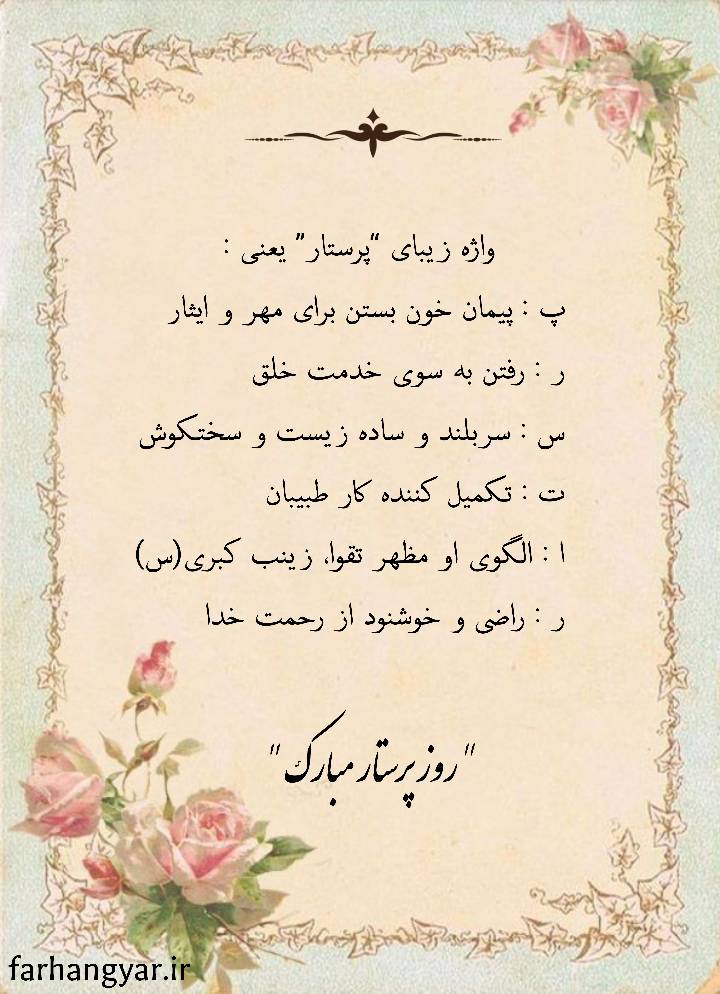 واژه زیبای “پرستار” یعنی :
پ : پیمان خون بستن برای مهر و ایثار
ر : رفتن به سوی خدمت خلق
س : سربلند و ساده زیست و سختکوش
ت : تکمیل کننده کار طبیبان
ا : الگوی او مظهر تقوا، زینب کبری(س)
ر : راضی و خوشنود از رحمت خدا
"روز پرستار مبارک"
farhangyar.ir